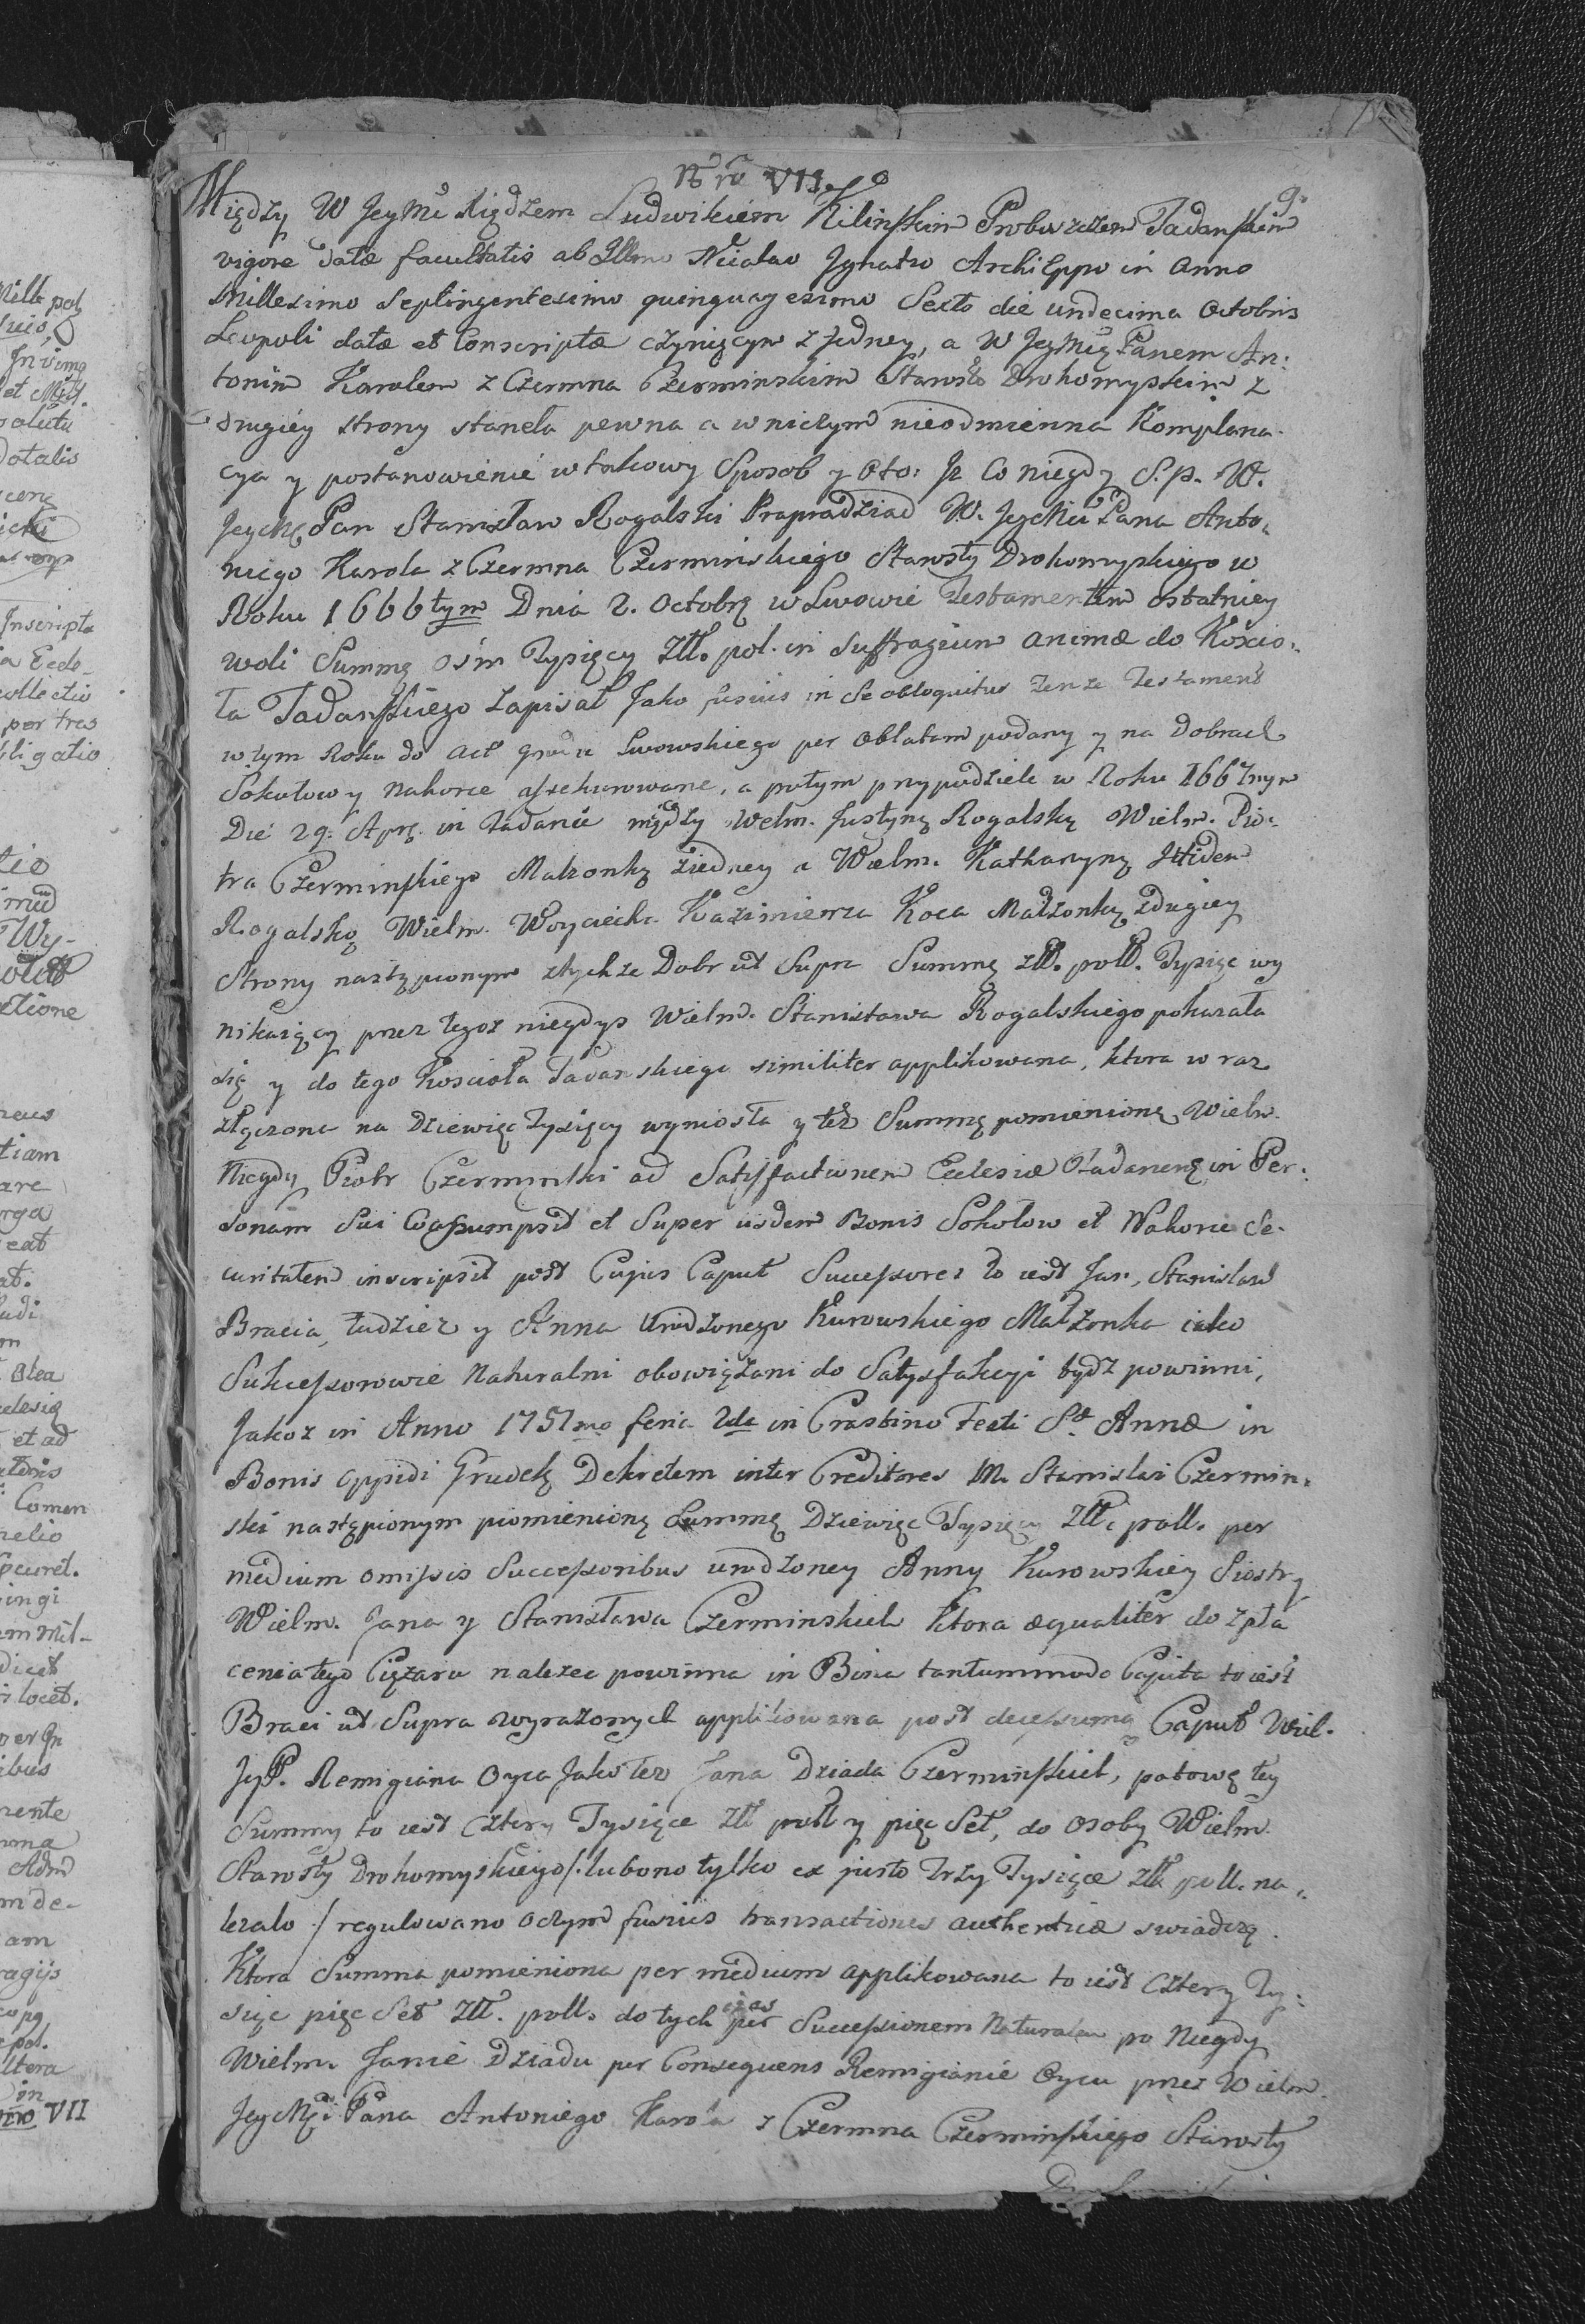 Nro VII.
9.
Między W JeyMć Xiędzem Ludwikiem Kilinskim Proboszczem Tadanskim
vigore datæ facultatis ab Illmo Nicolao Ignatio Archi Eppo in Anno
Millesimo Septingentesimo quinquagesimo Sexto die undecima Octobris
Leopoli datæ et Conscriptæ czyniącym z jedney, a W JeyMcią Panem An:
tonim Karolem z Czermna Czerminskim Starostą Drohomyskim z
drugiéy strony staneła pewna a w niczym nieodmienna Komplana-
cya y postanowienié w takowy Sposob y Oto: Iz Co niegdy S. p. W.
JeyMć Pan Stanisław Rogalski Prapradziad W. JeyMci Pana Anto-
niego Karola z Czermna Czerminskiego Starosty Drohomyskiego w
Roku 1666tym Dnia 2. Octobrę w Lwowie Testamentem ostatniey
woli Summę ośm Tysięcy Złł. pol. in Suffragium animæ do Koscio-
ła Tadanskiego zapisał Jako fusius in se obloquitur tenze Testament
w tym Roku do Act Grodu Lwowskiego per Oblatam podany y na Dobrach
Sokołow y Nahorce assekurowane, a potym przy podziele w Roku 1667mym
Die 29. Aprę. in Tadanie między Welm. Justyną Rogalską Wielm. Pio-
tra Czerminskiego Małzonką ziedney a Wielm. Katharzyną Itidem
Rogalską Wielm. Woyciecha Kazimierza Koca Małzonką zdrugiey
Strony nastąpionym ztychze Dobr ut Supra Summę złł. poll. Tysiąc wy
nikaiący przez tegoz niegdys Wielm. Stanisława Rogalskiego pokazała
się y do tego Koscioła Tadanskiego similiter applikowana, ktora w raz
złączona na Dziewięc Tysięcy wyniosła y też Summę pomienioną Wielm.
Niegdy Piotr Czerminski ad Satisfactionem Eclesiæ Tadanenę in Per-
sonam Sui Coassumpsit et Super iisdem Bonis Sokołow et Nahorce Se-
curitatem inscripsit post Cujus Caput Successores to iest Jan, Stanisław
Bracia, tudziez y Anna Urodzonego Kurowskiego Małzonka iako
Sukcessorowie Naturalni obowiązani do Satysfakcyi bydz powinni,
Jakoz in Anno 1751mo feria 2da in Crastino Festi Sæ Annæ in
Bonis Oppidi Grudek Dekretem inter Creditores M. Stanislai Czermin-
ski nastąpionym piomienioną Summę Dziewięc Tysięcy Złł. poll. per
medium omissis Successoribus urodzoney Anny Kurowskiey Siostry
Wielm. Jana y Stanisława Czerminskich Ktora æqualiter do zpła
cenia tego Cięzaru nalezec powinna in Bina tantummodo Capita to iest
Braci ut Supra wyrazonych applikowana post decessum Caput Wiel.
JcyP. Remigiana Oyca Jako tez Jana Dziada Czerminskich, połowę tey
Summy to iest Cztery Tysiące Złł poll y pięc Set, do Osoby Wielm.
Starosty Drohomyskiego /: lubono tylko ex justo Trzy Tysiące złł poll. na-
lezało :/ regulowano Oczym fusius transactiones authenticæ swiadczą.
Ktora Summa pomieniona per medium applikowana to iest Cztery Ty-
siąc pięc Set Złł. poll. do tych czas per Successionem Naturalem po Niegdy
Wielm. Janié Dziadu per Consequens Remigianie Oycu przez Wielm.
JeyMci Pana Antoniego Karola z Czermna Czerminskiego Starosty